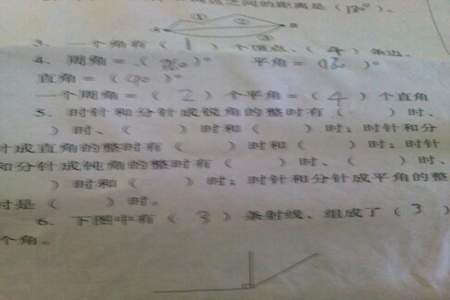 之间的距离是(
① ② ③ A B
3. 一个角有( 1 )个顶点,( 4 )条边.
4. 周角=( 360 )° 平角=( 180 )°
直角=( 90 )°
一个周角=( 2 )个平角=( 4 )个直角
5. 时针和分针成锐角的整时有( )时、
( )时、( )时和( )时;时针和分
针成直角的整时有( )时和( )时;时针
和分针成钝角的整时有( )时、( )时、
( )时和( )时;时针和分针成平角的整
时是( )时。
6. 下图中有( 3 )条射线,组成了( 3 )
个角。